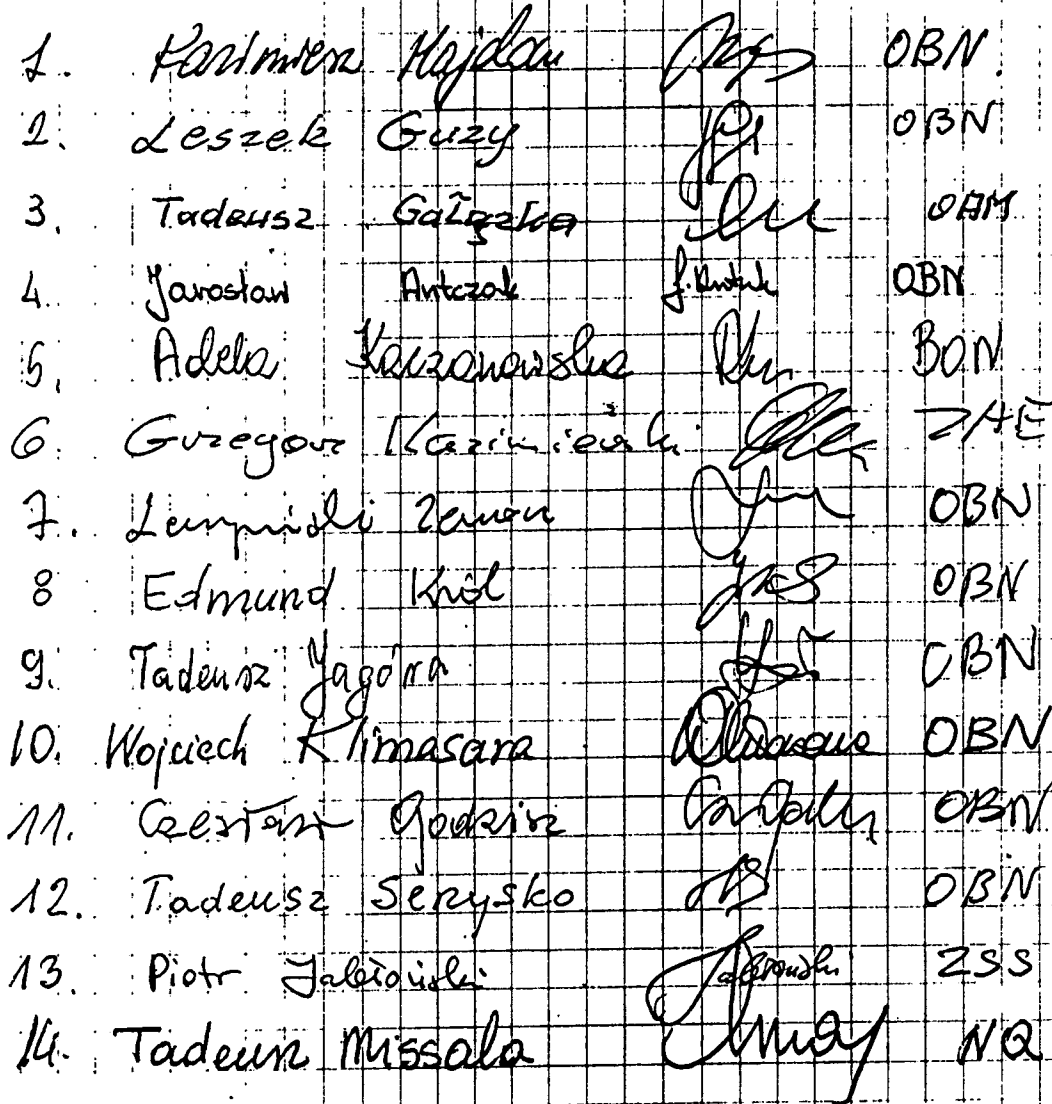 1. Kazimierz Majdan OBN.
2. Leszek Guzy OBN
3. Tadeusz Gałązka OAM
4. Jarosław Antczak J. Antczak OBN
5. Adela Kaczanowska BON
6. Grzegorz Kazimierski ZAE
7. Zenon OBN
8 Edmund Król OBN
9. Tadeusz Jagóra OBN
10. Wojciech Klimasara OBN
11. Czesław Godzisz OBN
12. Tadeusz Seryśko OBN
13. Piotr Jabłoński Jabłoński ZSS
14. Tadeusz Missala NQ